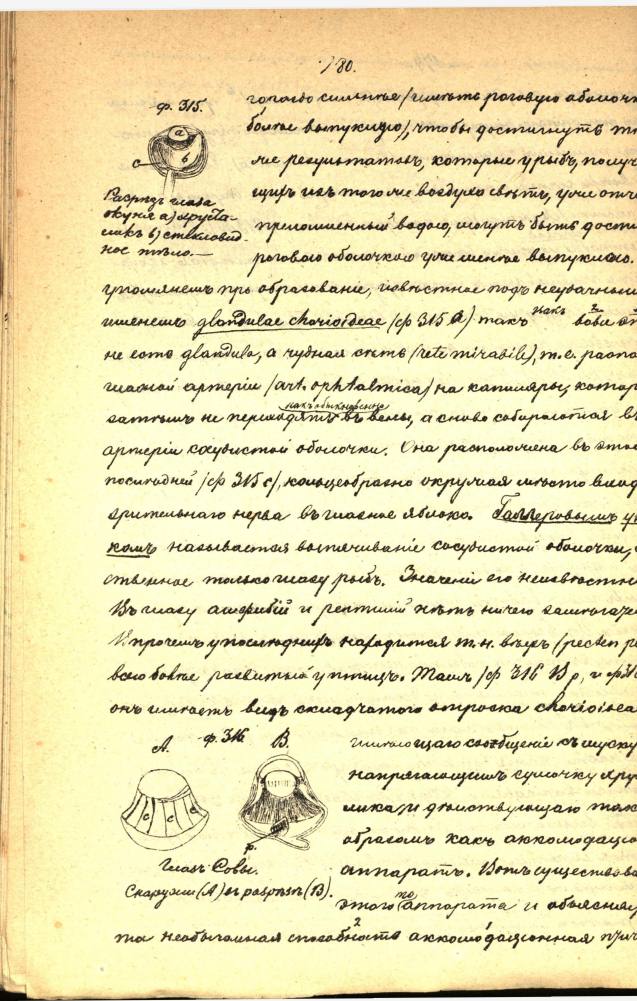 180.
ф. 315.
a
b
c
Разрѣзъ глаза
окуня a) хруста-
ликъ b) стекловид-
ное тѣло.—
гораздо сильнѣе (имѣть роговую оболочк
болѣе выпуклую), чтобы достигнуть т
же результатовъ, которые у рыбъ, получ
щихъ изъ того же воздуха свѣтъ, уже отч
преломленный водою, могутъ быть дости
роговою оболочкою уже менѣе выпуклою.
упомянемъ про образованіе, извѣстное подъ неудачным
именемъ glandulae chorioideae (ф 315 a) такъ какъ
не есть glandula, а чудная сѣть (rete mirabile), т.е. распа
глазной артеріи (art. ophtalmica) на капилляры, котор
какъ обыкновенно
затѣмъ не переходятъ въ вены, а снова собираются в
артеріи сосудистой оболочки. Она расположена въ этой
послѣдней (ф 315 c), кольцеобразно окружая мѣсто вхо
зрительнаго нерва въ глазное яблоко. Галлеровымъ
комъ называется выпячиваніе сосудистой оболочки,
ственное только глазу рыбъ. Значеніе его неизвѣстн
Въ глазу амфибій и рептилій нѣтъ ничего замѣчате
Впрочемъ у послѣднихъ находится т.н. вѣеръ (pecten
всего болѣе развитый у птицъ. Тамъ (ф 316 B p, и ф
онъ имѣетъ видъ складчатаго отростка chorioidea
A. ф. 316. B.
c c c
p.
Глазъ Совы.
Снаружи (A) въ разрѣзѣ (B).
имѣющаго сообщеніе съ муску
напрягающимъ сумочку хру
лика, и дѣйствующаго так
образомъ какъ аккомодацiо
аппаратъ. Вотъ существова
этого то аппарата и объясня
та необычайная способность аккомодаціонная